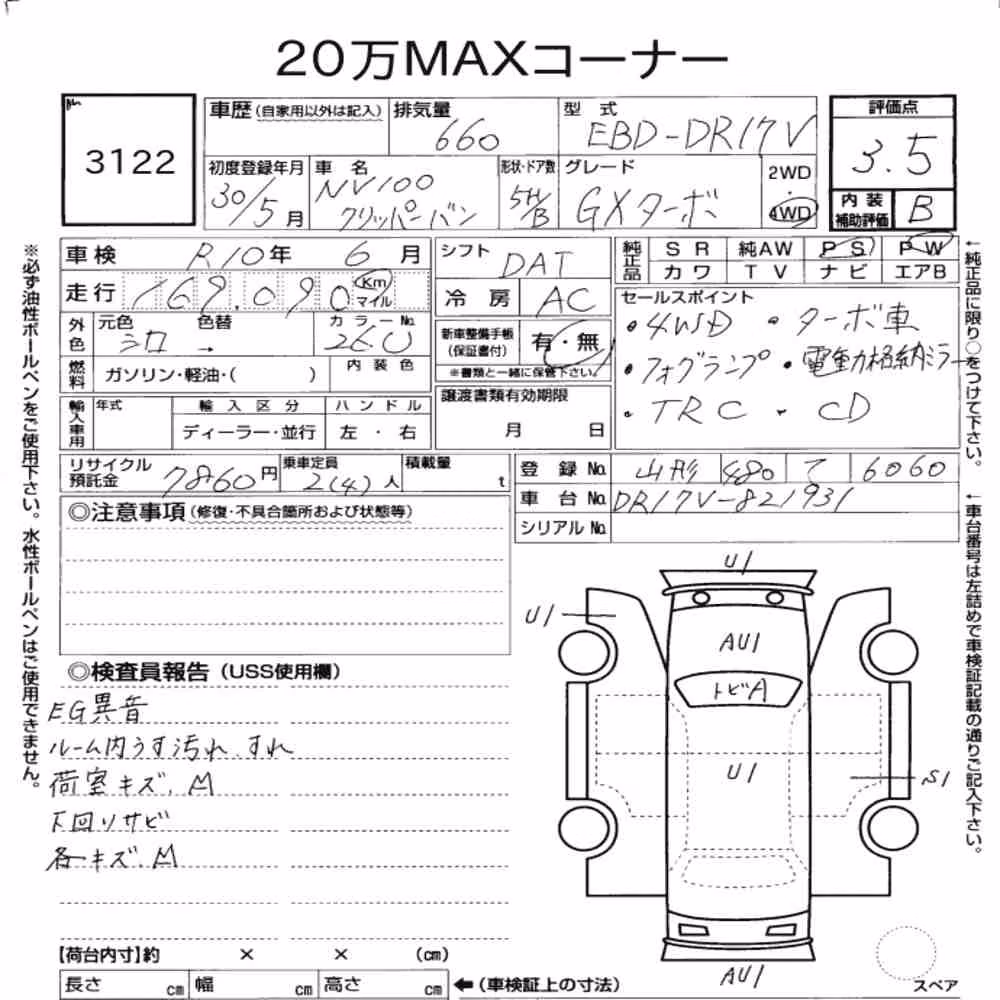 20万MAXコーナー
3122
車歴 (自家用以外は記入) 排気量 660 型 式 EBD-DR17V 評価点 3.5
初度登録年月 30/5月 車 名 NV100 クリッパーバン 形状・ドア数 5H/B グレード GXターボ 2WD・4WD 内装補助評価 B
車検 R10年 6月 シフト DAT 純正品 SR 純AW PS PW
カワ TV ナビ エアB
走行 169,090 Km マイル 冷房 AC
セールスポイント
・4WD ・ターボ車
・フォグランプ ・電動格納ミラー
・TRC ・CD
外色 元色 シロ → 色替 カラーNo. 26U 新車整備手帳 (保証書付) 有・無
※書類と一緒に保管下さい。
燃料 ガソリン・軽油・( ) 内装色
輸入車用 年式 輸入区分 ハンドル 譲渡書類有効期限
ディーラー・並行 左・右 月 日
リサイクル預託金 7860円 乗車定員 2(4)人 積載量 t 登録No. 山形 480 て 6060
車台No. DR17V-821931
シリアルNo.
◎注意事項 (修復・不具合箇所および状態等)
◎検査員報告 (USS使用欄)
EG異音
ルーム内うす汚れ、すれ
荷室キズ、M
下回りサビ
各キズ、M
U1
U1
AU1
トビA
U1
S1
AU1
スペア
【荷台内寸】約 × × (cm)
長さ cm 幅 cm 高さ cm ←(車検証上の寸法)
※必ず油性ボールペンをご使用下さい。水性ボールペンはご使用できません。
←純正品に限り○をつけて下さい。
←車台番号は左詰めで車検証記載の通りご記入下さい。